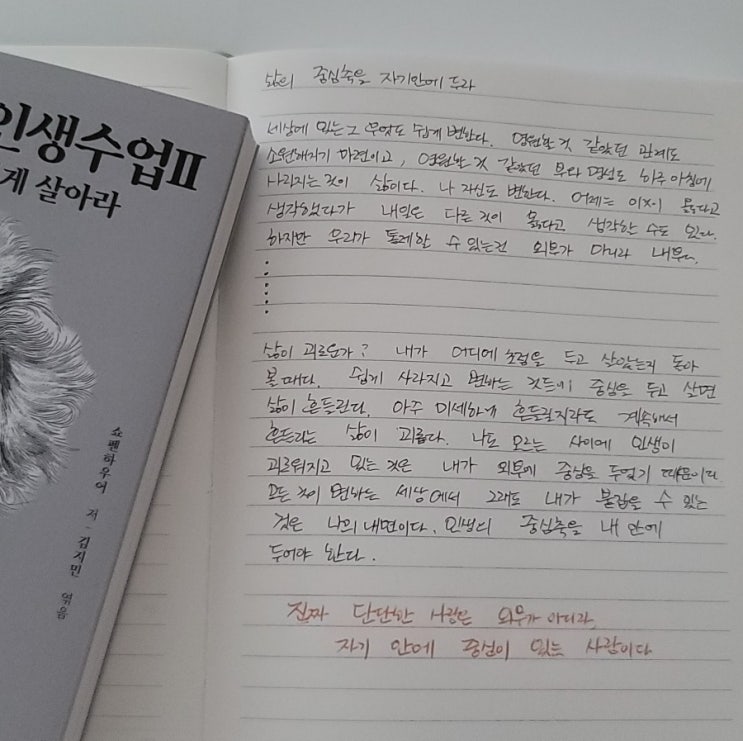 인생수업Ⅱ
게 살아라
쇼펜하우어 저·김지민 엮음
삶의 중심축을 자기안에 두라
세상에 있는 그 무엇도 쉽게 변한다. 영원할 것 같았던 관계도
소원해지기 마련이고, 영원할 것 같았던 부와 명성도 하루 아침에
사라지는 것이 삶이다. 나 자신도 변한다. 어제는 이것이 옳다고
생각했다가 내일은 다른 것이 옳다고 생각할 수도 있다.
하지만 우리가 통제할 수 있는건 외부가 아니라 내부다.
삶이 괴로운가? 내가 어디에 초점을 두고 살았는지 돌아
볼 때다. 쉽게 사라지고 변하는 것들에 중심을 두고 살면
삶이 흔들린다. 아주 미세하게 흔들릴지라도 계속해서
흔들리는 삶이 괴롭다. 나도 모르는 사이에 인생이
괴로워지고 있는 것은 내가 외부에 중심을 두었기 때문이다
모든 것이 변하는 세상에서 그래도 내가 붙잡을 수 있는
것은 나의 내면이다. 인생의 중심축을 내 안에
두어야 한다.
진짜 단단한 사람은 외부가 아니라,
자기 안에 중심이 있는 사람이다